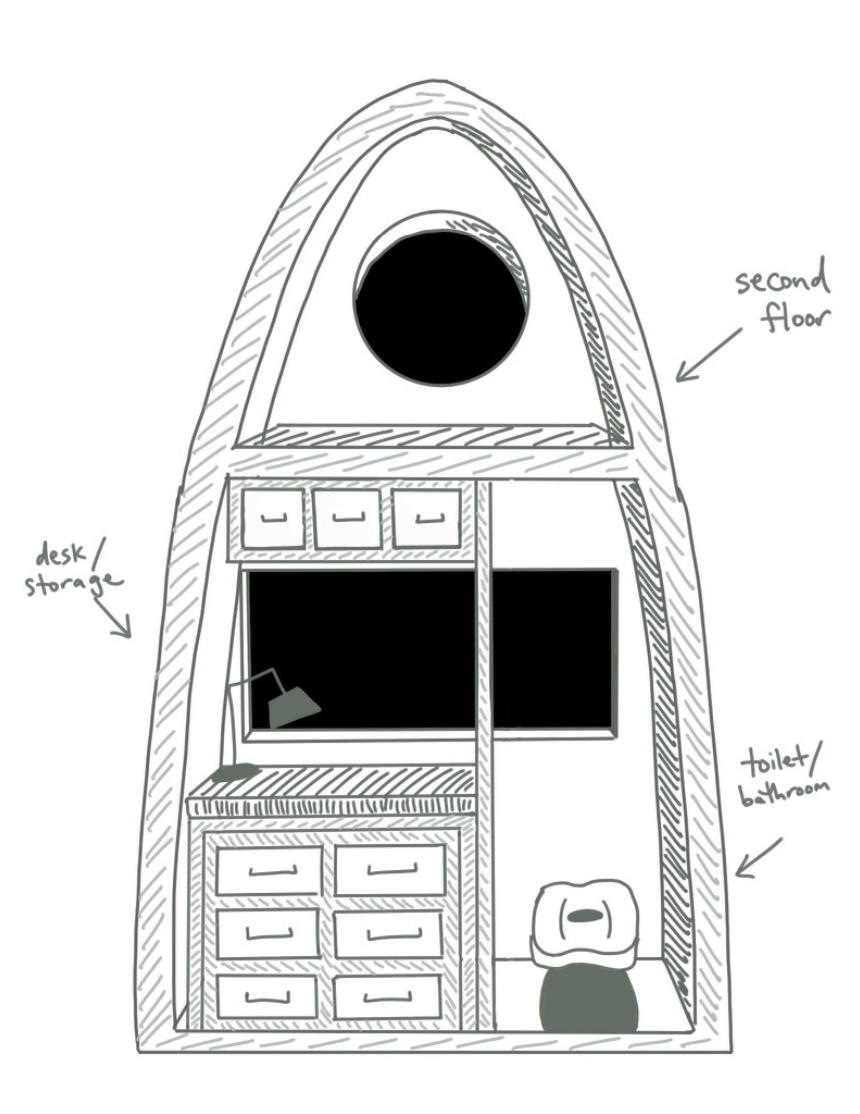 second
floor
desk/
storage
toilet/
bathroom